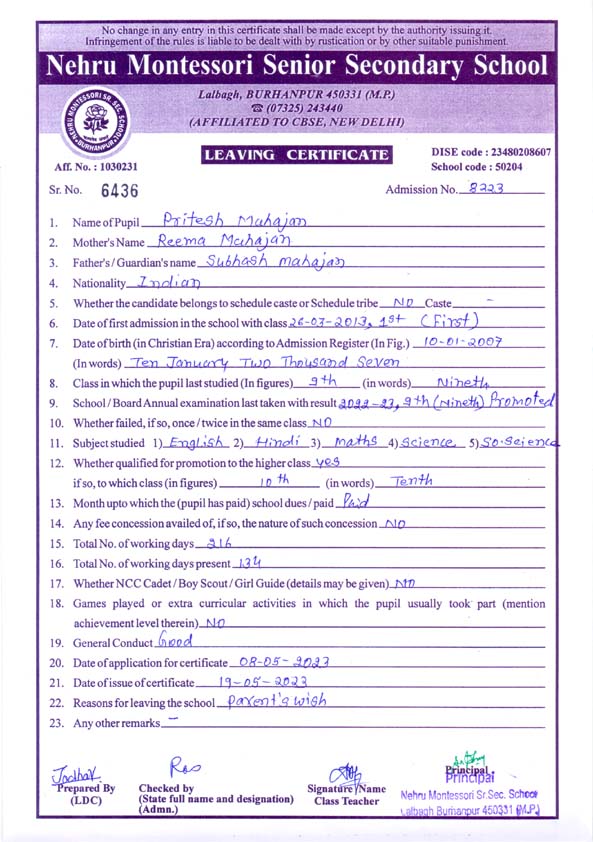 No change in any entry in this certificate shall be made except by the authority issuing it.
Infringement of the rules is liable to be dealt with by rustication or by other suitable punishment.
Nehru Montessori Senior Secondary School
Lalbagh, BURHANPUR 450331 (M.P.)
☎ (07325) 243440
(AFFILIATED TO CBSE, NEW DELHI)
NEHRU MONTESSORI SR. SEC. SCHOOL
BURHANPUR
LEAVING CERTIFICATE
DISE code : 23480208607
Aff. No. : 1030231 School code : 50204
Sr. No. 6436 Admission No. 8223
1. Name of Pupil Pritesh Mahajan
2. Mother's Name Reema Mahajan
3. Father's / Guardian's name Subhash mahajan
4. Nationality Indian
5. Whether the candidate belongs to schedule caste or Schedule tribe NO Caste -
6. Date of first admission in the school with class 26-03-2013, 1st (First)
7. Date of birth (in Christian Era) according to Admission Register (In Fig.) 10-01-2007
(In words) Ten January Two Thousand Seven
8. Class in which the pupil last studied (In figures) 9th (in words) Nineth
9. School / Board Annual examination last taken with result 2022-23, 9th (Nineth) Promoted
10. Whether failed, if so, once / twice in the same class NO
11. Subject studied 1) English 2) Hindi 3) Maths 4) Science 5) So-Science
12. Whether qualified for promotion to the higher class yes
if so, to which class (in figures) 10th (in words) Tenth
13. Month upto which the (pupil has paid) school dues / paid Paid
14. Any fee concession availed of, if so, the nature of such concession NO
15. Total No. of working days 216
16. Total No. of working days present 134
17. Whether NCC Cadet / Boy Scout / Girl Guide (details may be given) NO
18. Games played or extra curricular activities in which the pupil usually took part (mention
achievement level therein) NO
19. General Conduct Good
20. Date of application for certificate 08-05-2023
21. Date of issue of certificate 19-05-2023
22. Reasons for leaving the school parent's wish
23. Any other remarks -
Prepared By
(LDC)
Checked by
(State full name and designation)
(Admn.)
Signature / Name
Class Teacher
Principal
Principal
Nehru Montessori Sr.Sec. School
Lalbagh Burhanpur 450331 (M.P.)